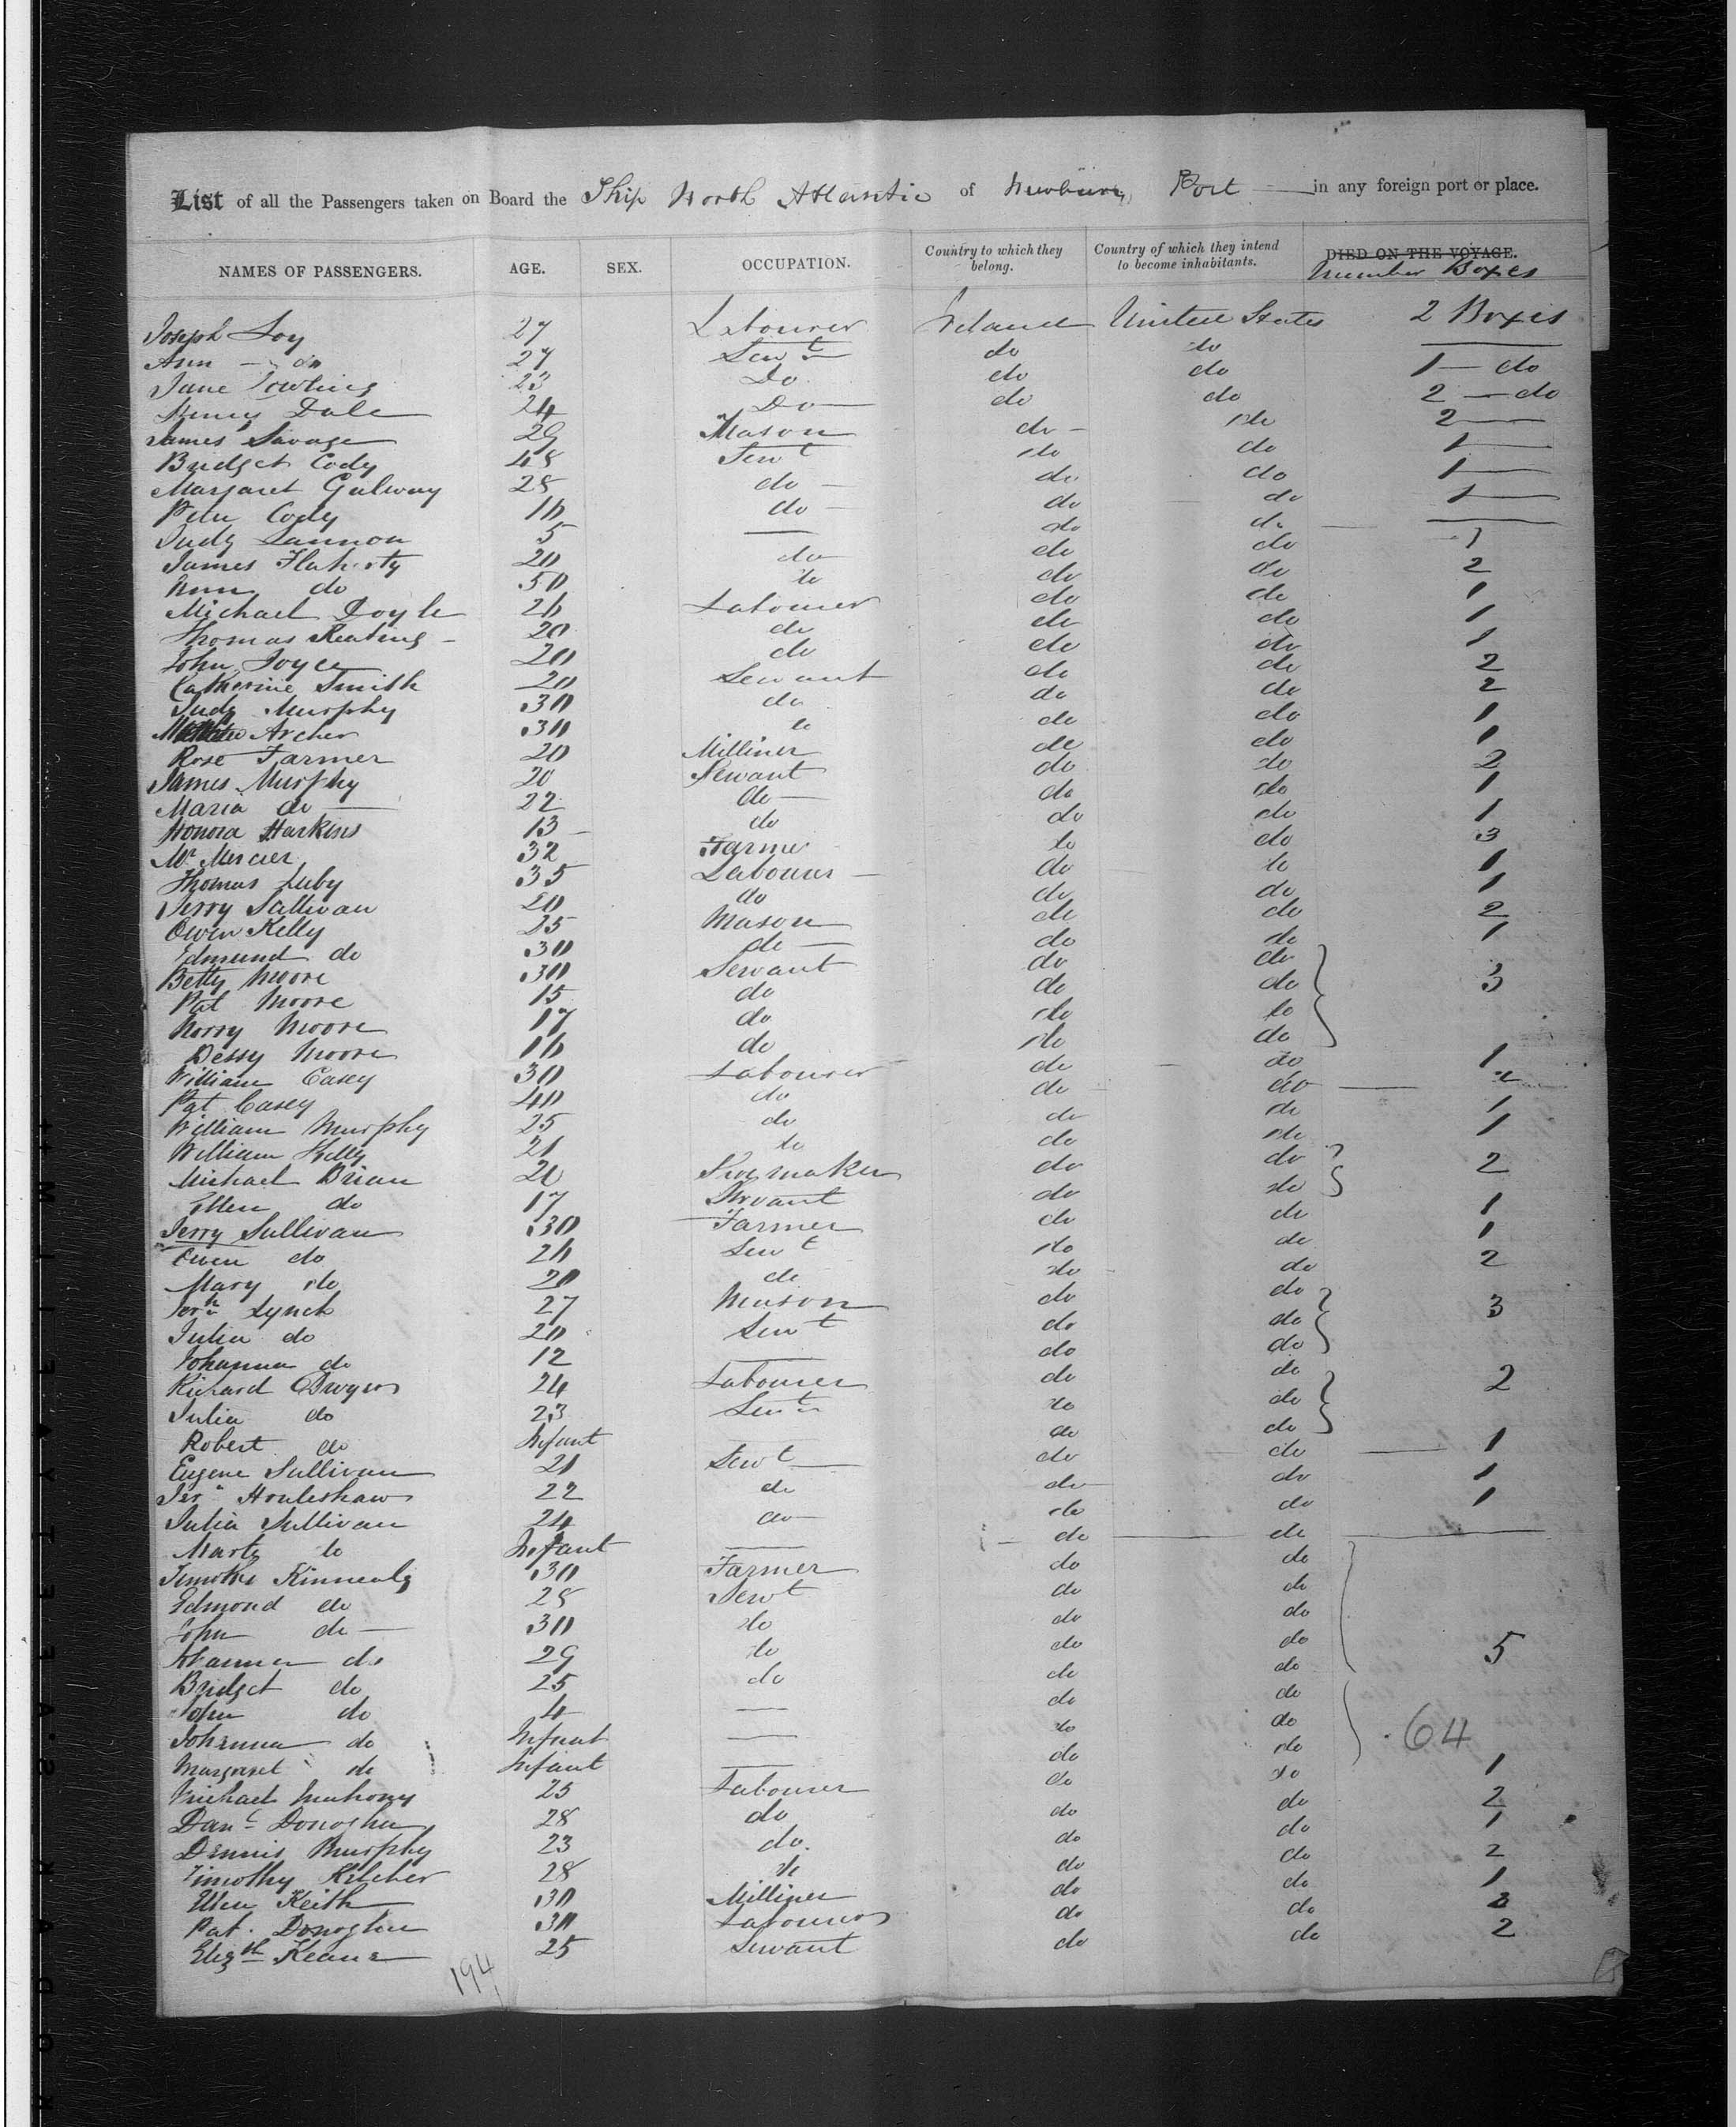 List of all the Passengers taken on Board the Ship North Atlantic of Newbury Port in any foreign port or place.
NAMES OF PASSENGERS. AGE. SEX. OCCUPATION. Country to which they belong. Country of which they intend to become inhabitants. DIED ON THE VOYAGE. Number Boxes
Joseph Foy 27 Labourer Ireland United States 2 Boxes
Ann do 27 Servt do do
Jane 23 Do do do 1 do
Henry Dale 24 Do do do 2 do
James Savage 29 Mason do do 2
Bridget Cody 48 Servt do do 1
Margaret Galway 28 do do do 1
Peter Cody 16 do do do 1
Judy Lannon 5 do do
James Flaherty 20 do do do 1
Ann do 50 do do do 2
Michael Doyle 26 Labourer do do 1
Thomas Keating 20 do do do 1
John Joyce 20 do do do 1
Catherine Smith 20 Servant do do 2
Judy Murphy 30 do do do 2
Archer 30 do do do 1
Rose Farmer 20 Milliner do do 1
James Murphy 20 Servant do do 2
Maria do 22 do do do 1
Honora Harkins 13 do do do 1
Mr Mercer 32 Farmer do do 3
Thomas Luby 35 Labourer do do 1
Jerry Sullivan 20 do do do 1
Owen Kelly 25 Mason do do 2
Edmund do 30 do do do 1
Betty Moore 30 Servant do do
Pat Moore 15 do do do 3
Norry Moore 17 do do do
Bessy Moore 16 do do do
William Casey 30 Labourer do do 1
Pat Casey 40 do do do 2
William Murphy 25 do do do 1
William Kelly 21 do do do 1
Michael Brian 20 Shoemaker do do 2
Ellen do 17 Servant do do
Jerry Sullivan 30 Farmer do do 1
Owen do 26 Servt do do 1
Mary do 20 do do do 2
Jerh Lynch 27 Mason do do
Julia do 20 Servt do do 3
Johanna do 12 do do
Richard Dwyer 24 Labourer do do
Julia do 23 Servt do do 2
Robert do Infant do do
Eugene Sullivan 21 Servt do do 1
Jerh 22 do do do 1
Julia Sullivan 24 do do do 1
Marty do Infant do do
Kinnealy 30 Farmer do do
Edmond do 28 Servt do do
John do 30 do do do
do 29 do do do 5
Bridget do 25 do do do
John do 4 do do
Johanna do Infant do do 64
Margaret do Infant do do
Michael Mahony 25 Labourer do do 1
Danl Donoghue 28 do do do 2
Dennis Murphy 23 do do do 1
Timothy Kelcher 28 do do do 2
Ellen Keith 30 Milliner do do 1
Pat. Donoghue 30 Labourer do do
Elizth Keane 25 Servant do do 2
194